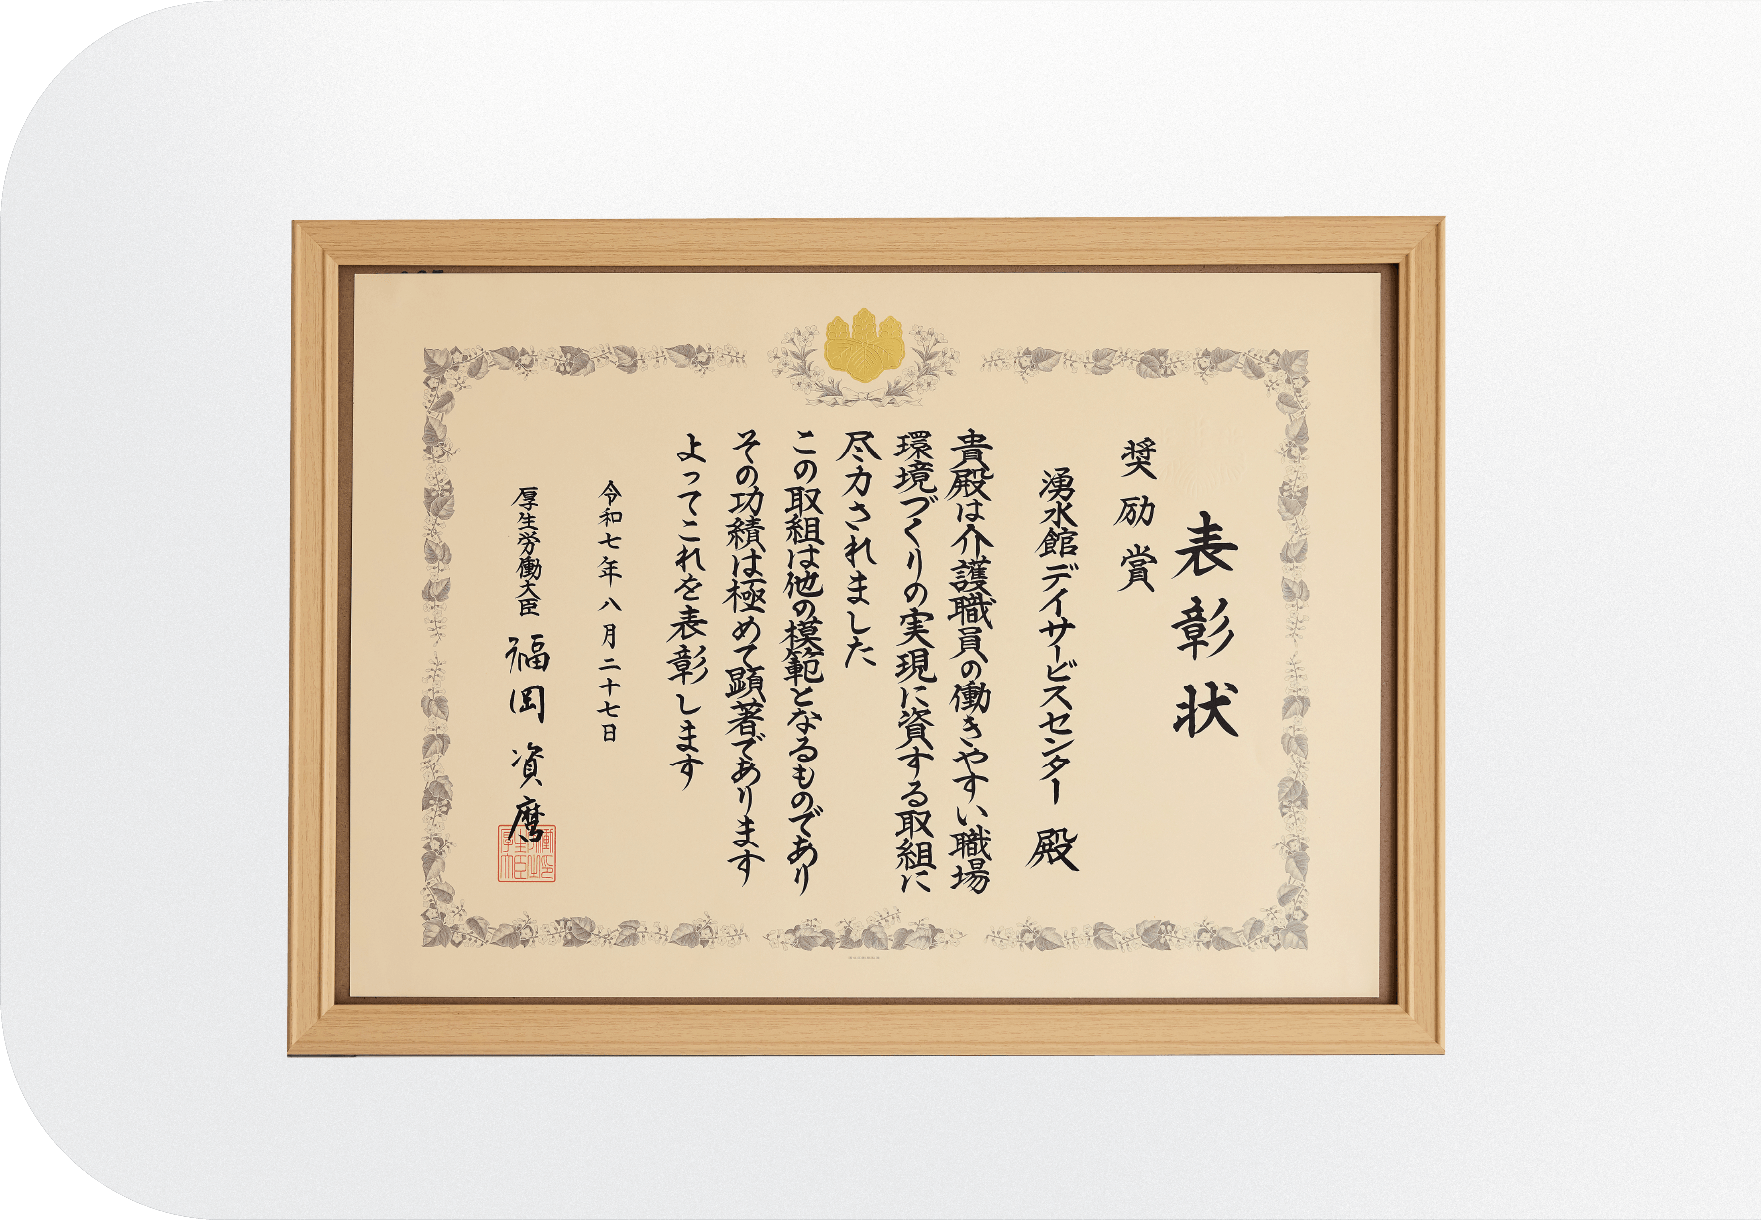 表彰状
奨励賞
湧水館デイサービスセンター 殿
貴殿は介護職員の働きやすい職場
環境づくりの実現に資する取組に
尽力されました
この取組は他の模範となるものであり
その功績は極めて顕著であります
よってこれを表彰します
令和七年八月二十七日
厚生労働大臣 福岡資麿